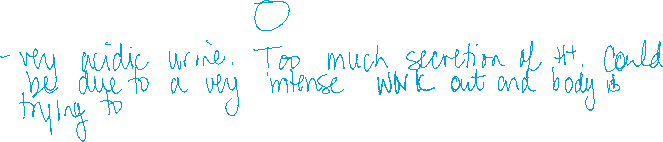 - very acidic urine. Too much secretion of H+. Could
be due to a very intense work out and body is
trying to